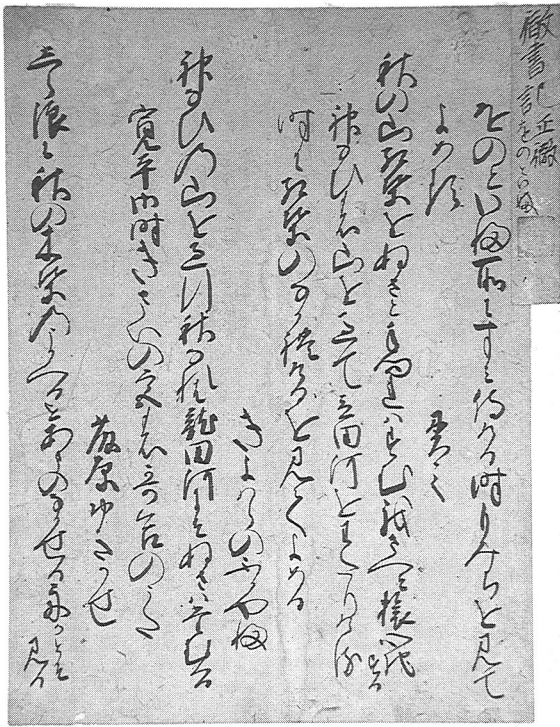 徹書記正徹
をのといふ
をのといふ所にすみ侍ける時もみちを見て
よめる
貫之
秋の山紅葉をぬさと手向れはすむ我さへそ旅心ちする
神なひの山を過て立田河をわたりける
時に紅葉のなかれけるを見てよめる
きよはらのふかやふ
神なひの山を過行秋なれは龍田河にそぬさは手向る
寛平御時きさいの宮の哥合のうた
藤原おきかせ
しら浪に秋の木葉のうかへるをあまのなかせる舟かとそ見る